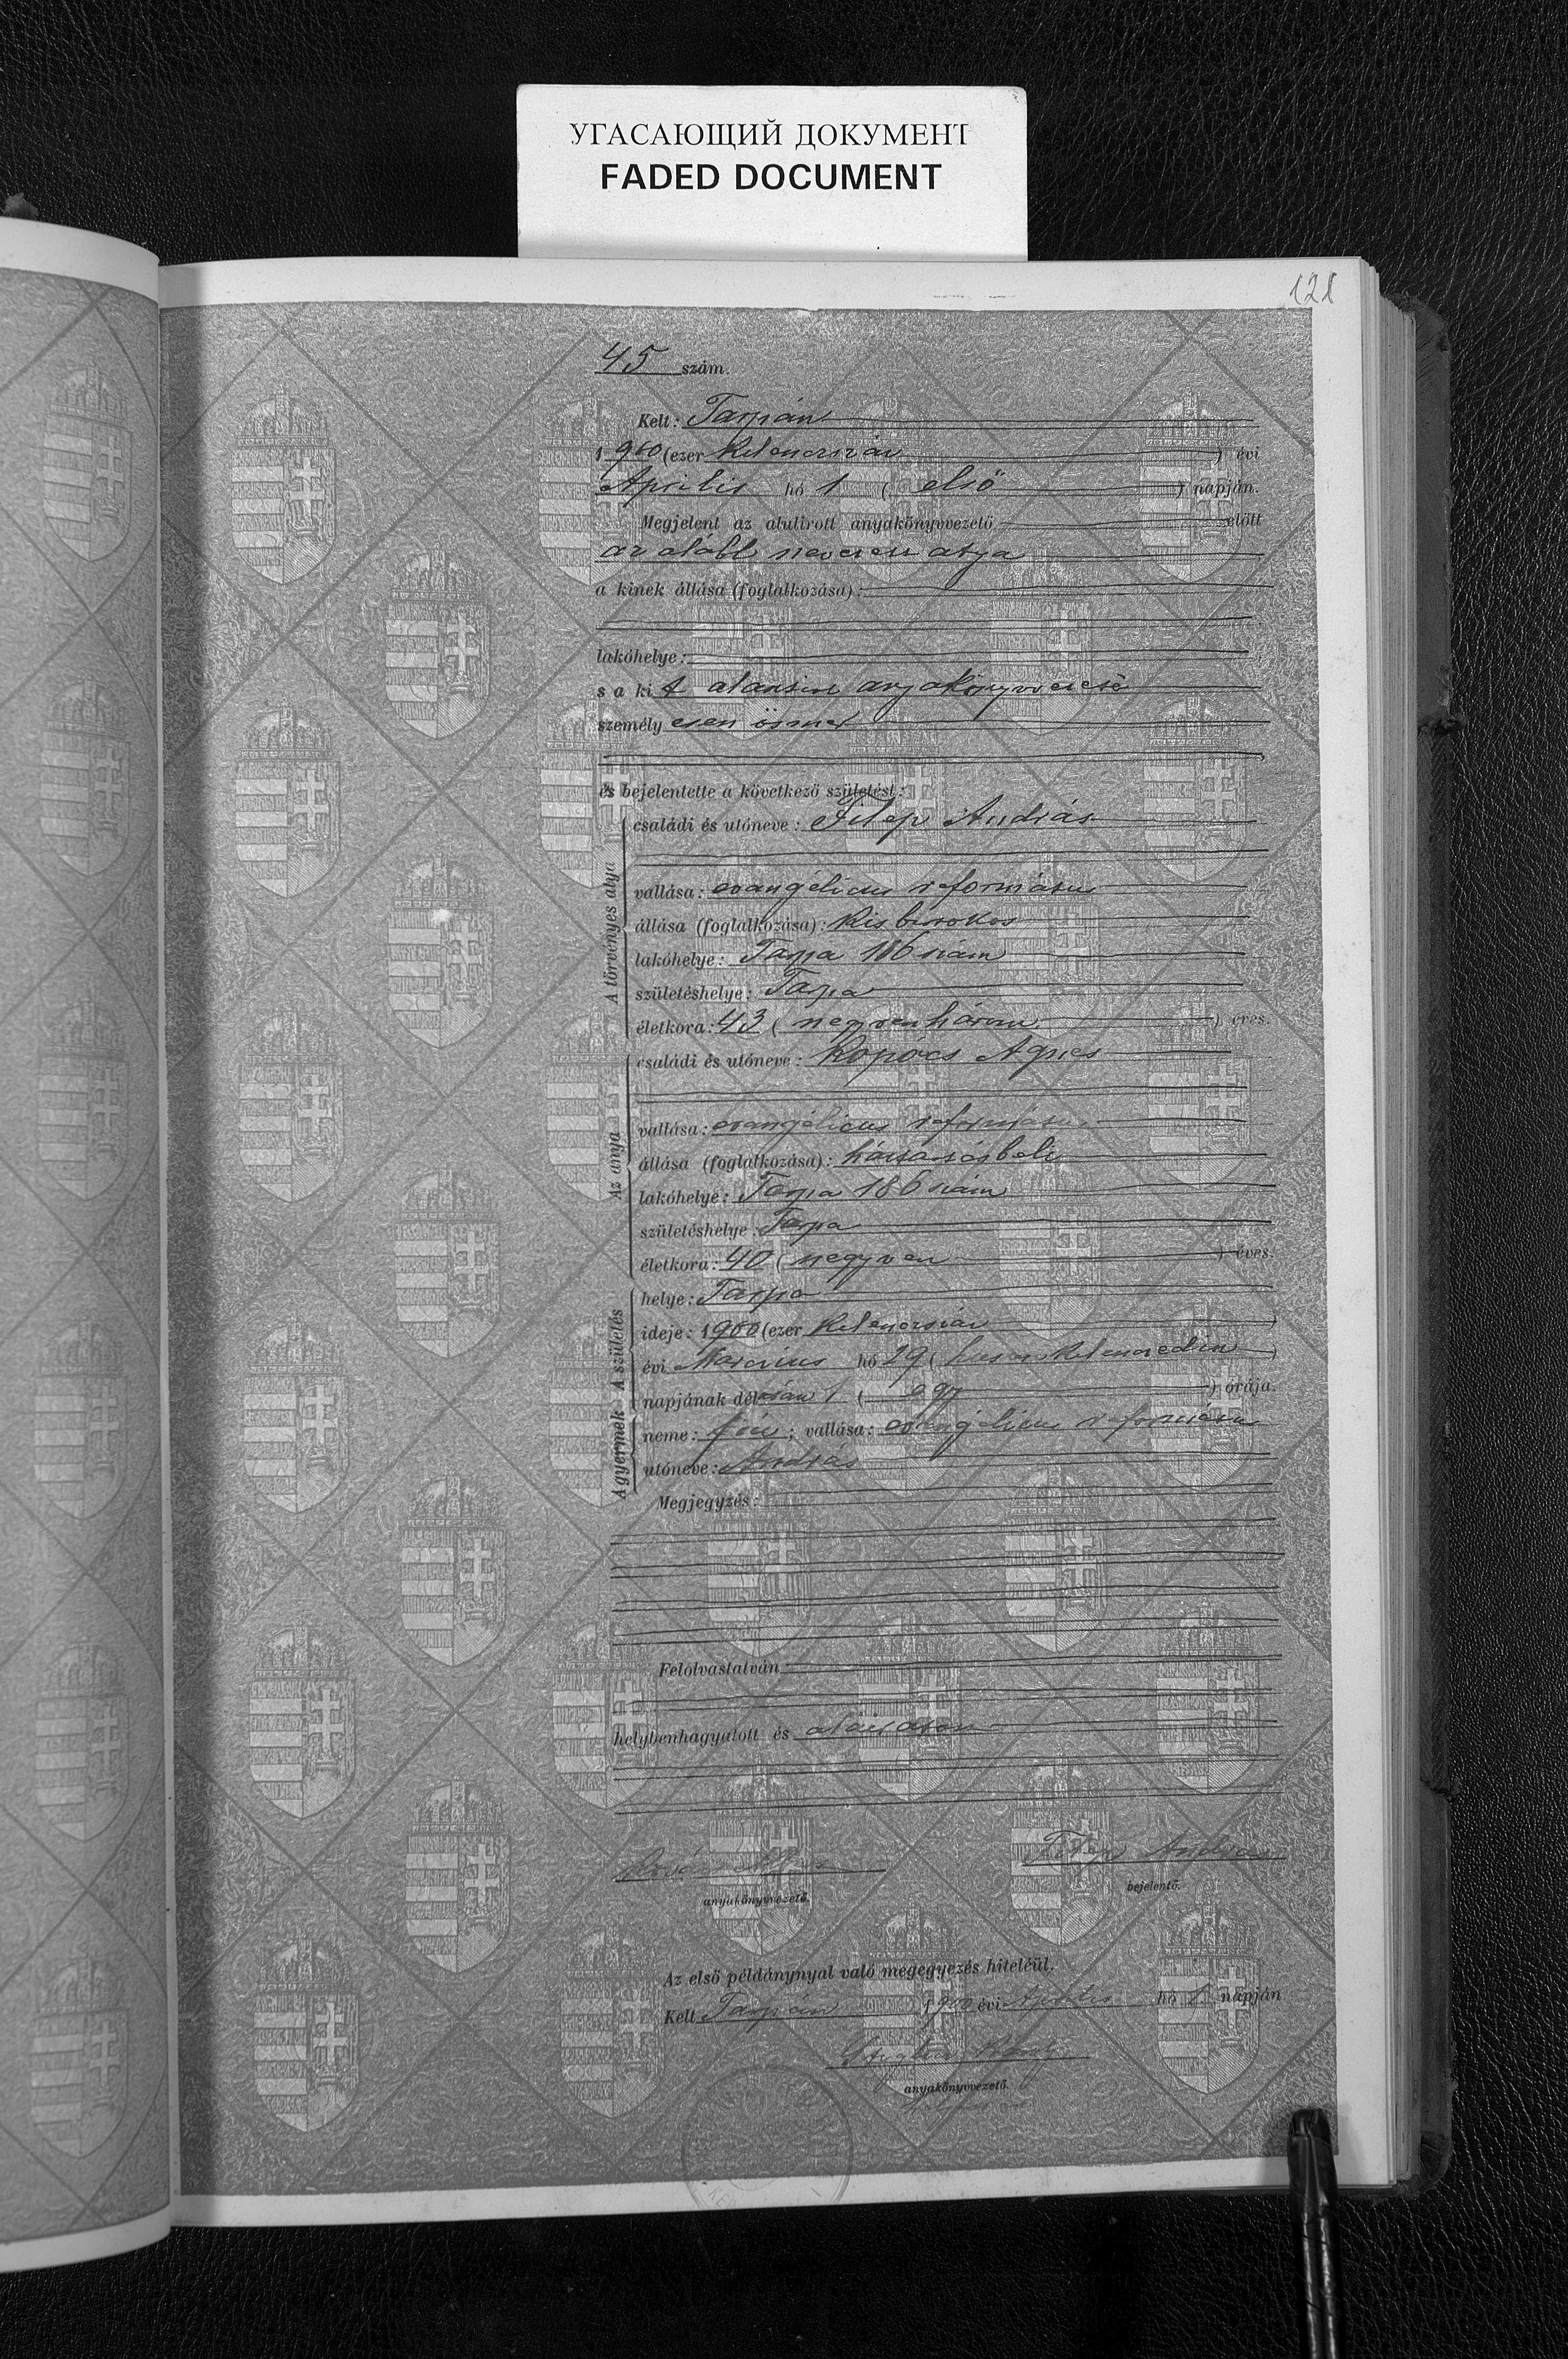 УГАСАЮЩИЙ ДОКУМЕНТ
FADED DOCUMENT
121
45 szám.
Kelt: Tarpán
1900 (ezer kilenczszáz ) évi
Április hó 1 ( első ) napján.
Megjelent az alulirott anyakönyvvezető előtt
az alább nevezett atya
a kinek állása (foglalkozása):
lakóhelye:
s a kit alantirt anyakönyvvezető
személyesen ösmer
és bejelentette a következő születést:
A törvényes atya
családi és utóneve: Filep András
vallása: evangélicus református
állása (foglalkozása): kis birtokos
lakóhelye: Tarpa 186 szám
születéshelye: Tarpa
életkora: 43 ( negyvenhárom ) éves.
Az anya
családi és utóneve: Kopócs Ágnes
vallása: evangélicus református
állása (foglalkozása): háztartásbeli
lakóhelye: Tarpa 186 szám
születéshelye: Tarpa
életkora: 40 ( negyven ) éves.
A születés
helye: Tarpa
ideje: 1900 (ezer kilenczszáz )
évi Márczius hó 29 ( huszonkilenczedik )
napjának dél 1 ( egy ) órája.
A gyermek
neme: fiú; vallása: evangélicus református
utóneve: András
Megjegyzés:
Felolvastatván
helybenhagyatott és aláiratott
anyakönyvvezető.
Filep András
bejelentő.
Az első példánynyal való megegyezés hiteléül.
Kelt Tarpán 1900 évi Április hó 1. napján
anyakönyvvezető.